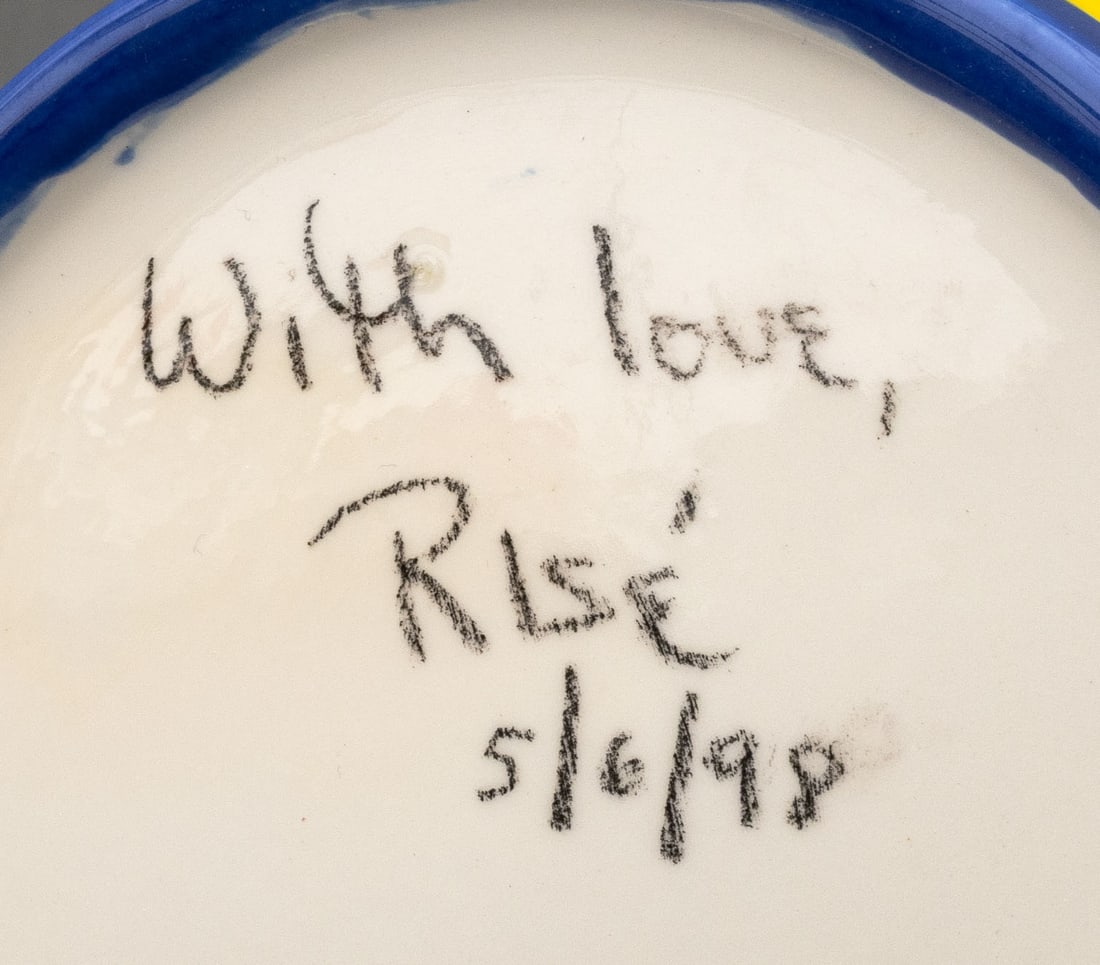 With love,
Risé
5/6/98